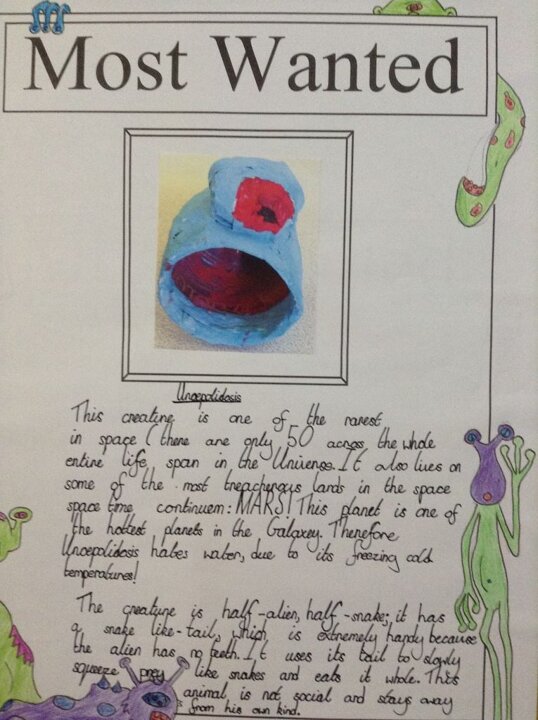 Most Wanted
Unoepolidosis
This creatine is one of the rarest
in space (there are only 50 across the whole
entire life span in the Universe. It also lives on
some of the most treacherous lands in the space
space time continuem: MARS! This planet is one of
the hottest planets in the Galaxey. Therefore
Unoepolidosis hates water, due to its freezing cold
temperatures!
The creature is half-alien, half-snake; it has
a snake like-tail, which is extremely handy because
the alien has no teeth. It uses its tail to slowly
squeeze prey like snakes and eats it whole. This
animal is not social and stays away
from his own kind.